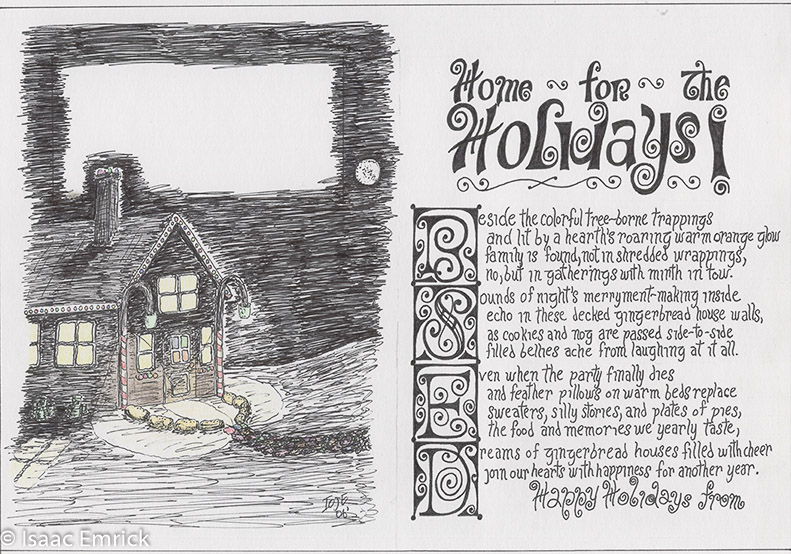 Home ~ for ~ the
Holidays!
Beside the colorful tree-borne trappings
and lit by a hearth's roaring warm orange glow
family is found, not in shredded wrappings,
no, but in gatherings with mirth in tow.
Sounds of night's merryment-making inside
echo in these decked gingerbread house walls,
as cookies and nog are passed side-to-side
filled bellies ache from laughing at it all.
Even when the party finally dies
and feather pillows on warm beds replace
sweaters, silly stories, and plates of pies,
the food and memories we yearly taste,
Dreams of gingerbread houses filled with cheer
join our hearts with happiness for another year.
Happy Holidays from
© Isaac Emrick